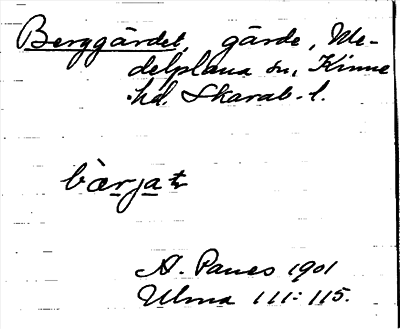 Berggärdet, gärde, Me-
delplana sn, Kinne
hd. Skarab. l.
bærjat
A. Panes 1901
Ulma 111:115.